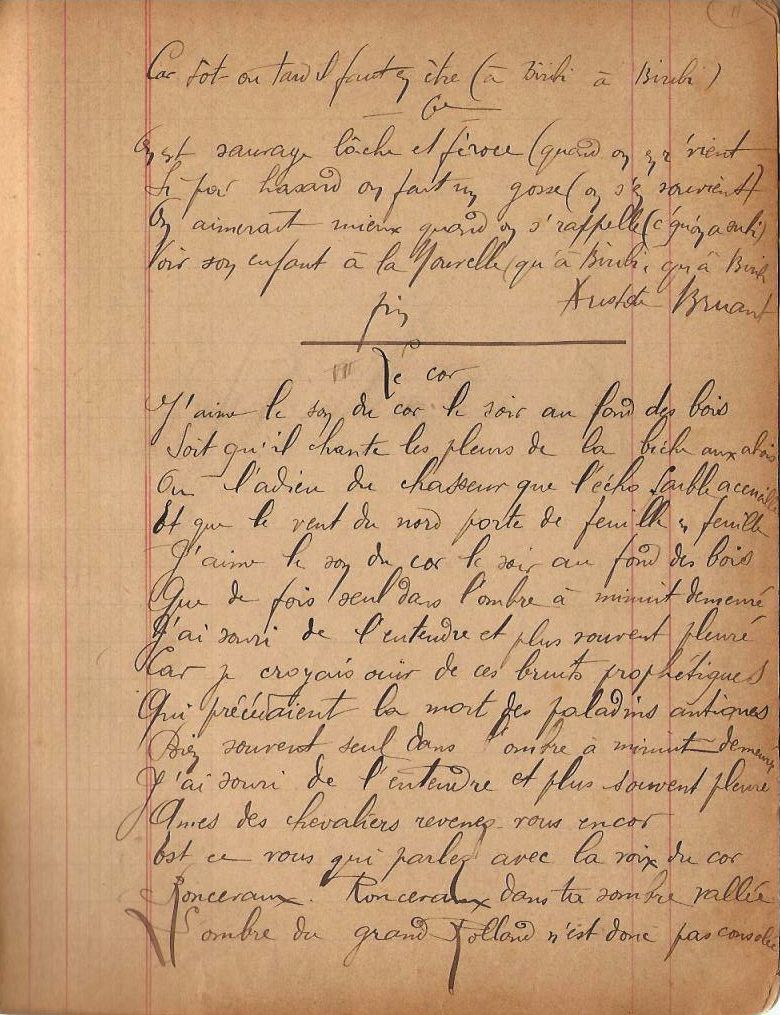 11
Car tôt ou tard il faut y être (à Biribi à Biribi)
6e
On est sauvage lâche et féroce (quand on en r'vient
Si par hasard on fait un gosse (on s'en souvient)
On aimerait mieux quand on s'rappelle (c'qu'on a subi)
Voir son enfant à la Nouvelle (qu'à Biribi, qu'à Biribi
Aristide Bruant
fin
Le cor
J'aime le son du cor le soir au fond des bois
Soit qu'il chante les pleurs de la biche aux abois
Ou l'adieu du chasseur que l'écho faible accueille
Et que le vent du nord porte de feuille en feuille
J'aime le son du cor le soir au fond des bois
Que de fois seul dans l'ombre à minuit demeuré
J'ai souri de l'entendre et plus souvent pleuré
Car je croyais ouir de ces bruits prophétiques
Qui précédaient la mort des paladins antiques
Bien souvent seul dans l'ombre à minuit demeuré
J'ai souri de l'entendre et plus souvent pleuré
Ames des chevaliers revenez vous encor
Est ce vous qui parlez avec la voix du cor
Ronceraux. Ronceraux dans ta sombre vallée
L'ombre du grand Rolland n'est donc pas consolée